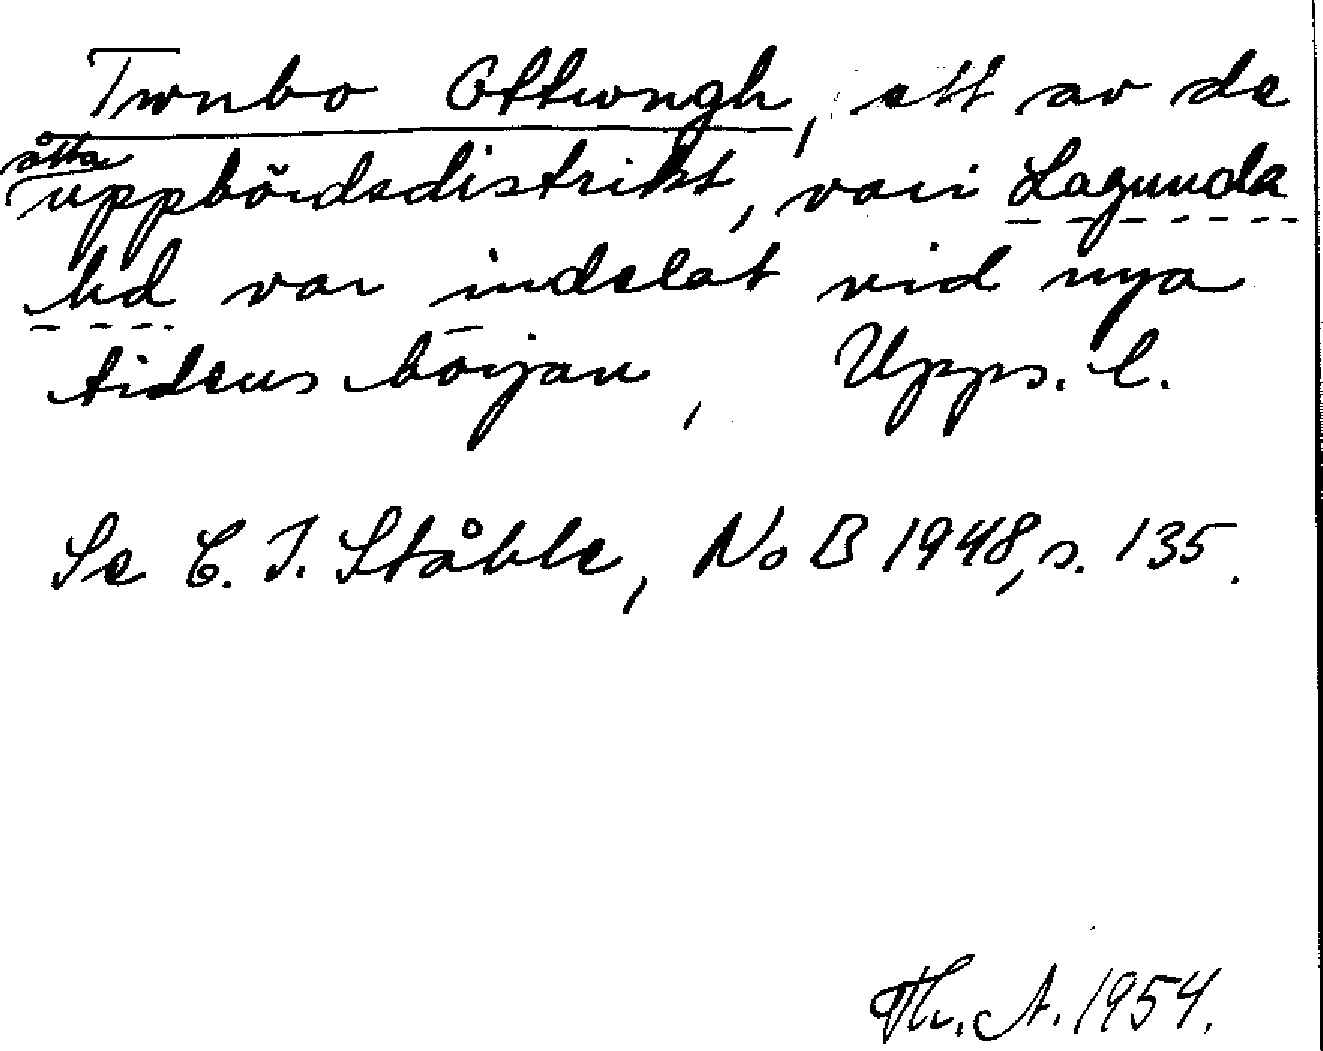 Twnbo Ottwngh, ett av de
åtta uppbördsdistrikt, vari Lagunda
hd var indelat vid nya
tidens början, Upps. l.
Se C. I. Ståhle, NoB 1948, s. 135.
Th. A. 1954.